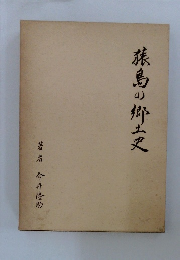 猿島の郷土史
著者